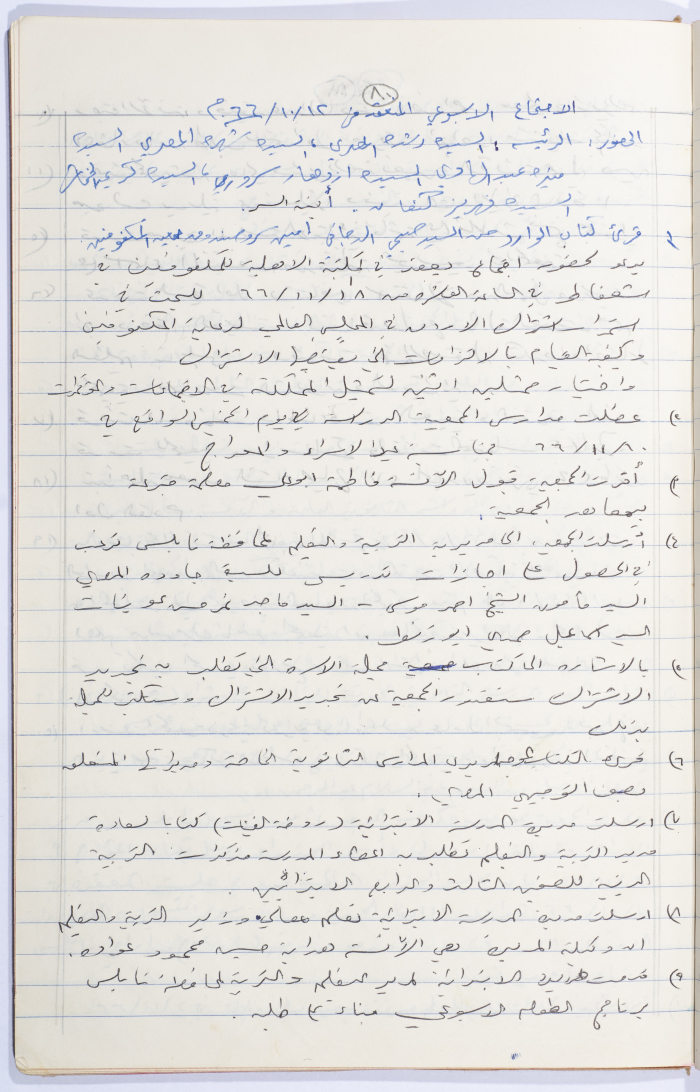 ٨٠
الاجتماع الاسبوعي المنعقد في ١٢/١٠/٦٦م
الحضور: الرئيسة: السيدة رشدة المصري، السيدة شهرة المصري السيدة
عبد الهادي السيدة ازدهار سروري، السيدة
السيدة فهريز كنفاني. أمينة السر.
١) قرئ كتاب الوارد من السيد صبحي الدجاني أمين سر صندوق جمعية المكفوفين
يدعو لحضور اجتماع يعقد في المكتبة الاهلية للمكفوفين في
شعفاط في الساعة العاشرة من ١٨/١١/٦٦ للبحث في
استمرار اشتراك الاردن في المجلس العالمي لرعاية المكفوفين
وكيفية القيام بالالتزامات التي يقتضيها الاشتراك
واختيار ممثلين اثنين لتمثيل المملكة في الاجتماعات والمؤتمرات
٢) عطلت مدارس الجمعية الدراسة في يوم الخميس الواقع في
١٠/١١/٦٦ بمناسبة عيد الاسراء والمعراج
٣) أقرت الجمعية قبول الآنسة فاطمة معلمة متبرعة
بمعاهد الجمعية.
٤) أرسلت الجمعية الى مديرية التربية والتعليم لمحافظة نابلس ترغب
في الحصول على اجازات تدريس للسيدة المصري
السيد مأمون الشيخ احمد موسى - السيد ماجد نمر حسن
السيد اسماعيل صبري
٥) بالاشارة الى كتاب مجلة الاسرة التي تطلب به تجديد
الاشتراك ستعتذر الجمعية عن تجديد الاشتراك وستكتب للمجلة
بذلك
٦) قرئ الكتاب الموجه لمديري المدارس الثانوية الخاصة ومديراتها المتعلق
بصف التوجيهي
٧) ارسلت مديرة المدرسة الابتدائية (روضة الفتيات) كتابا لسعادة
مدير التربية والتعليم تطلب به اعطاء المدرسة مذكرات التربية
الدينية للصفين الثالث والرابع الابتدائيين.
٨) ارسلت مديرة المدرسة الابتدائية تعلم معالي وزير التربية والتعليم
ان وكيلة المديرة هي الآنسة هداية حسين محمود عوادة.
٩) قدمت مديرة الابتدائية لمدير التعليم والتربية لمحافظة نابلس
برنامج الطعام الاسبوعي بناء على طلبه.